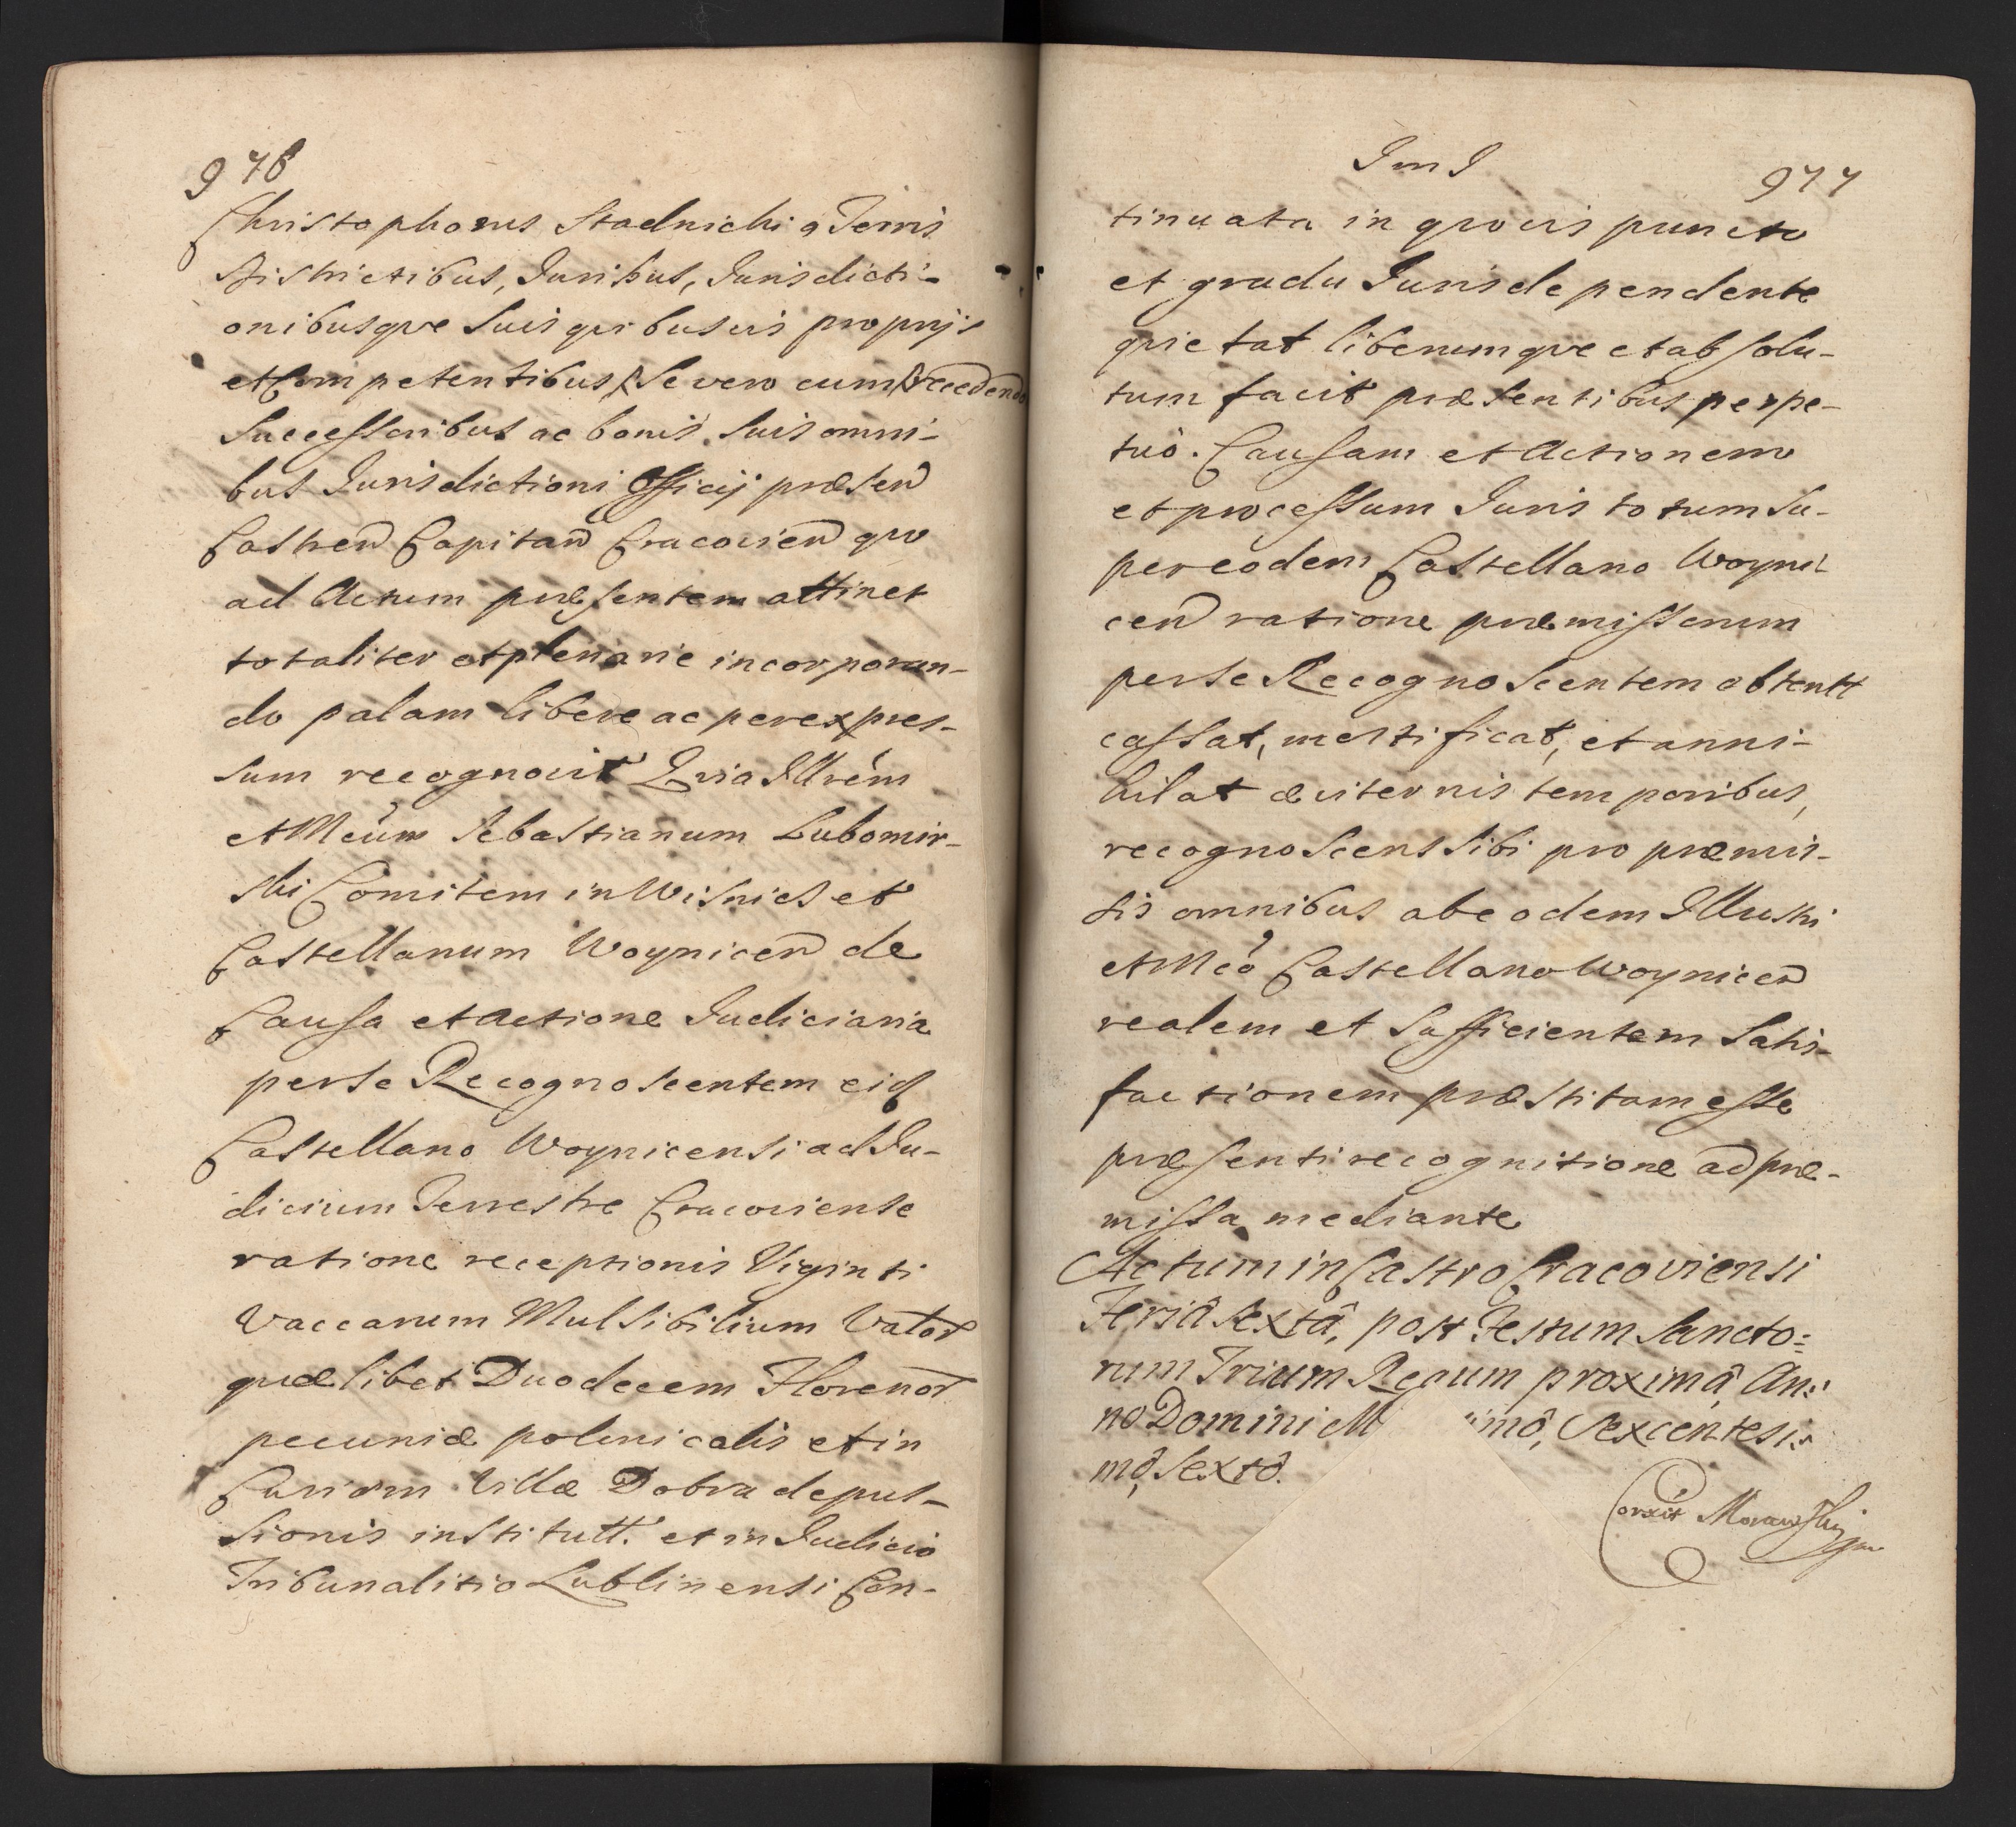 976
Christophorus Stadnicki a Terris
Districtibus, Juribus, Jurisdicti-
onibusque Suis quibusvis proprijs
et Competentibus, Se vero cum recedendo
Successoribus ac bonis Suis omni-
bus Jurisdictioni Officij præsen
Castren Capitan Cracovien quo
ad Actum præsentem attinet
totaliter et plenarie incorporan-
do palam libere ac per expres-
sum recognovit Quia Illrem
et Mcum Sebastianum Lubomir-
ski Comitem in Wisnicz et
Castellanum Woynicen de
Causa et Actione Judiciaria
per Se Recognoscentem eidq
Castellano Woynicensi ad Ju-
dicium Terrestre Cracoviense
ratione receptionis Viginti
Vaccarum Mulsibilium Valor
quælibet Duodecem Florenor
pecuniæ polinicalis et in
Curiam Villæ Dobra depul-
sionis institutt. et in Judicio
Tribunalitio Lublinensi Con-
Im I
977
tinuata in quovis puncto
et gradu Juris dependente
quietat liberumque et absolu-
tum facit præsentibus perpe-
tuò. Causam et Actionem
et processum Juris totum Su-
per eodem Castellano Woyni-
cen ratione præmissorum
per Se Recognoscentem obtentt
cassat, mortificat, et anni-
hilat æviternis temporibus,
recognoscens Sibi pro præmis-
sis omnibus ab eodem Illustri
et Mco Castellano Woynicen
realem et Sufficientem Satis-
factionem præstitam esse
præsenti recognitione ad præ-
missa mediante
Actum in Castro Cracoviensi
Feriâ Sextâ, post Festum Sancto=
rum Trium Regum proximâ An=
no Domini M imô, Sexcentesi=
mô, Sextô.
Correxit Morawski